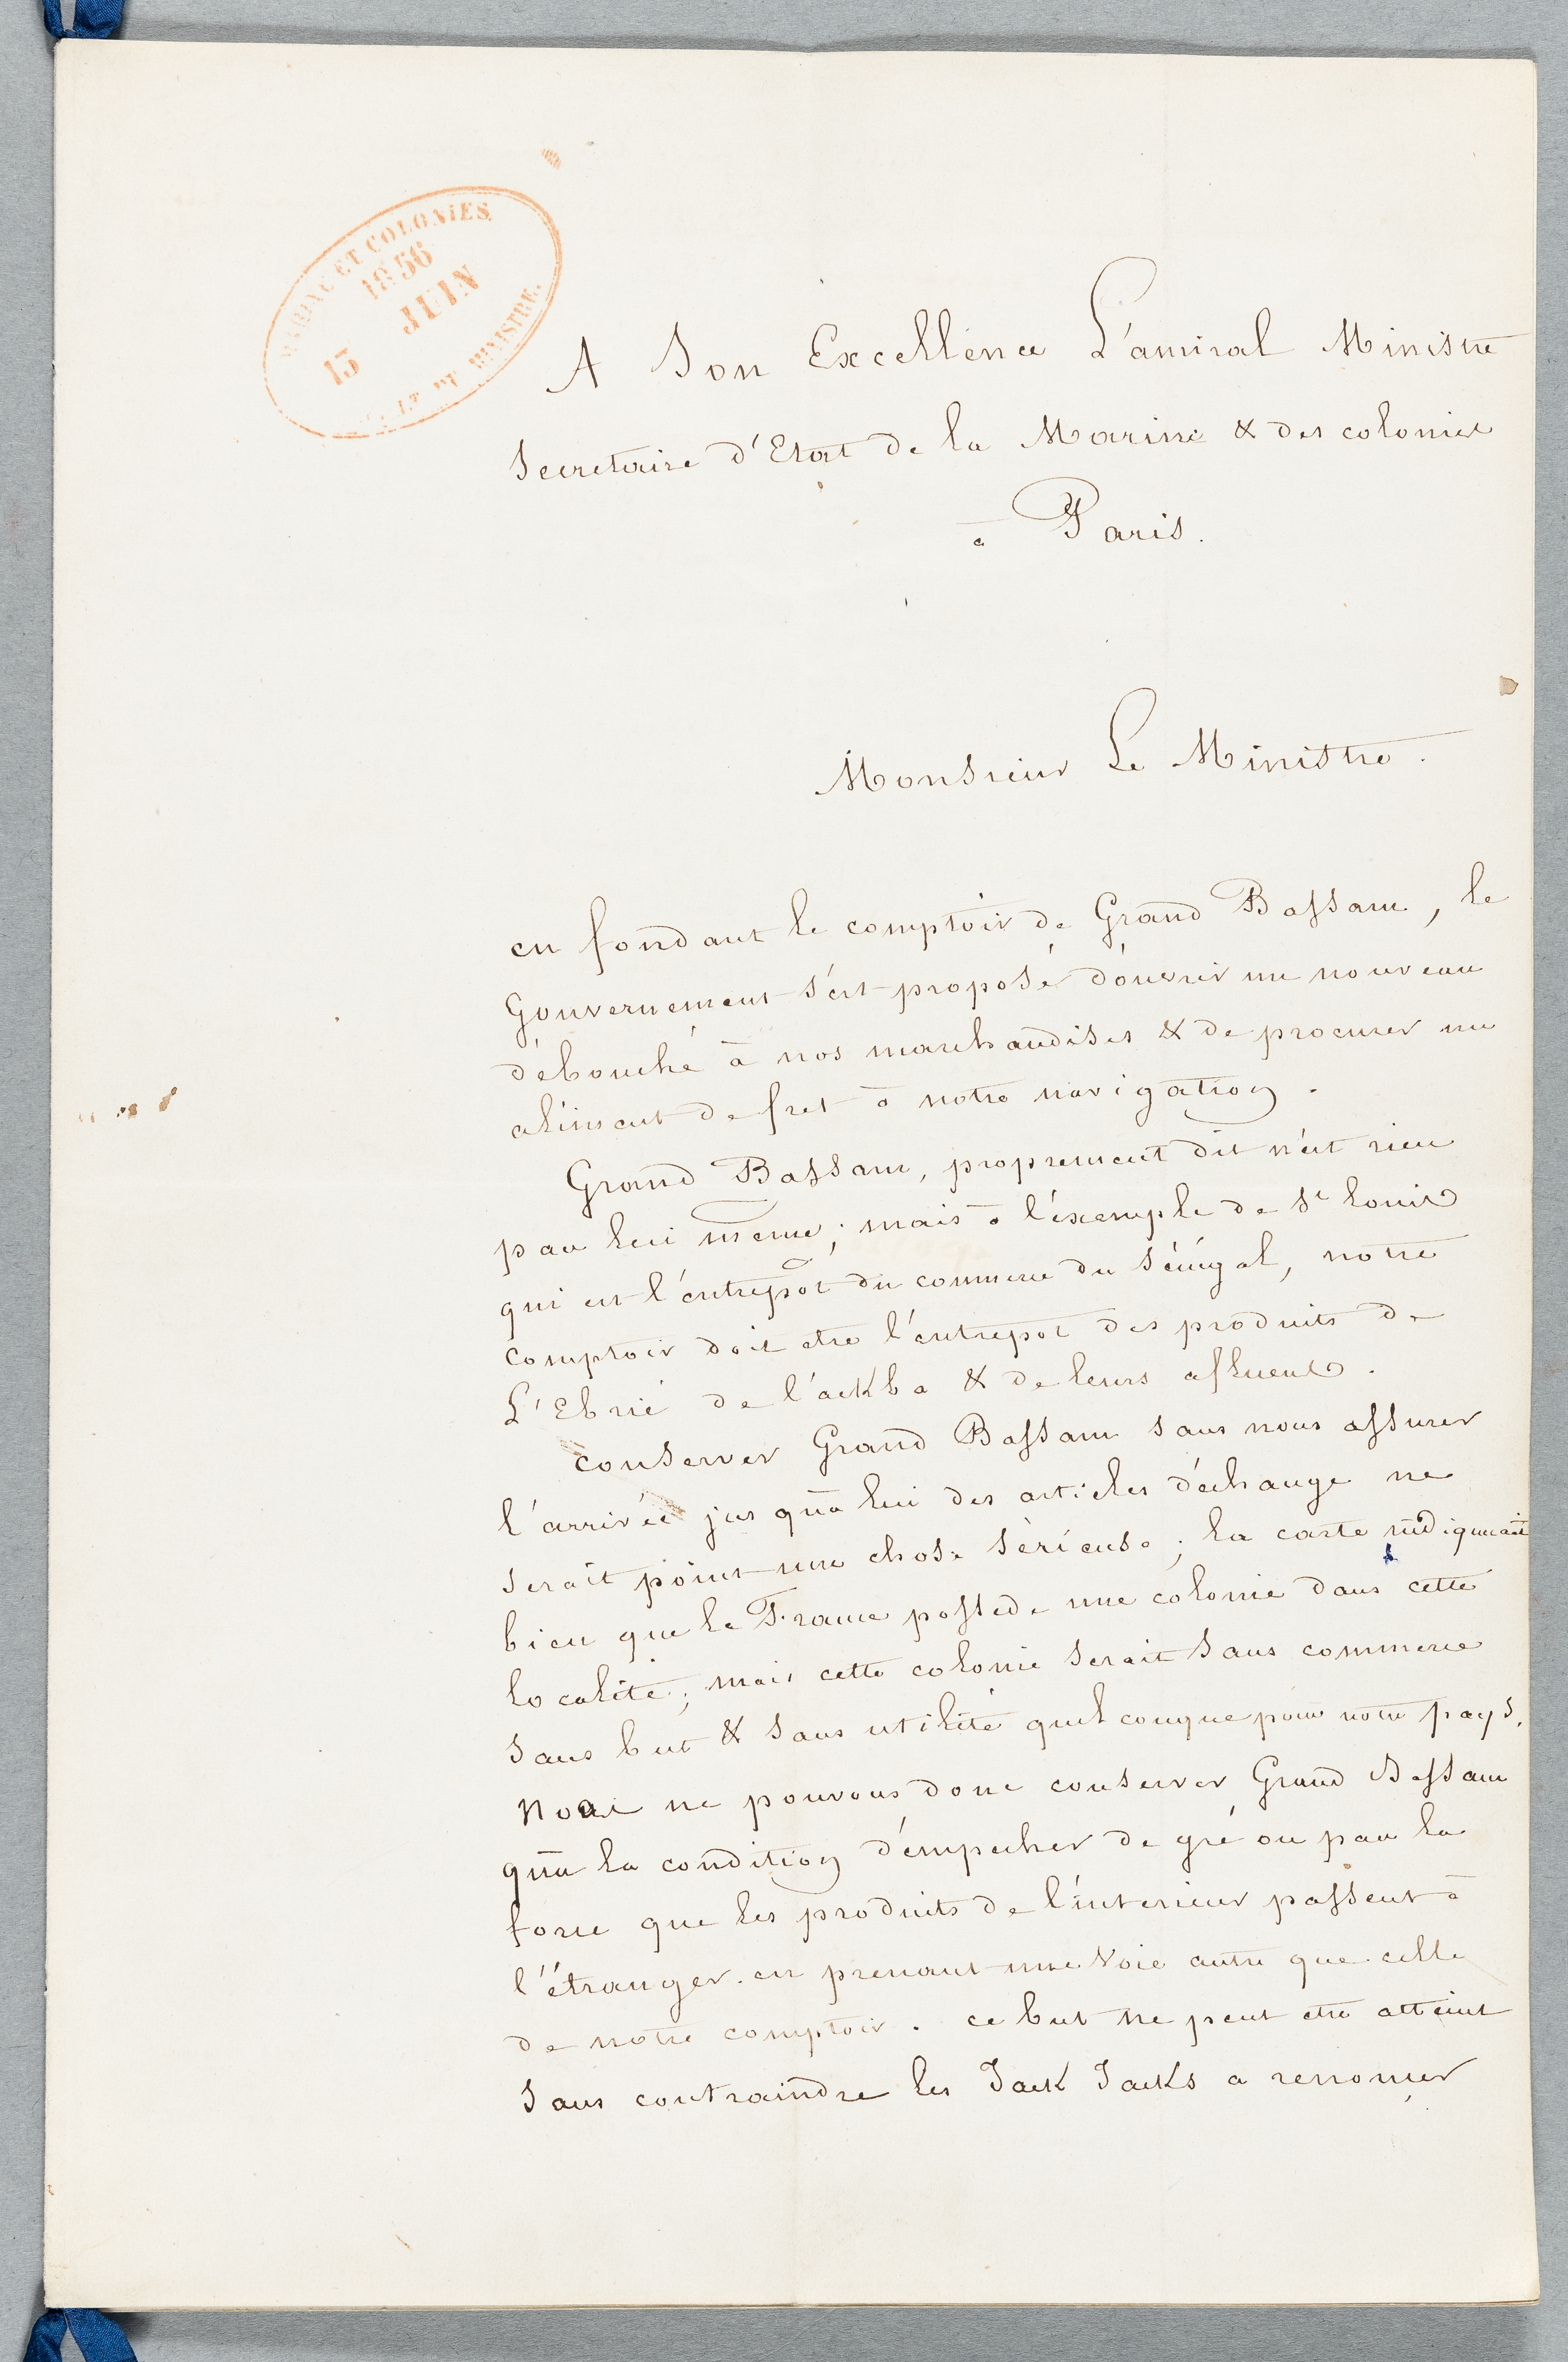 MARINE ET COLONIES
1856
13 JUIN
MINISTRE.
A Son Excellence L'amiral Ministre
Secretaire d'Etat de la Marine & des colonies
à Paris.
Monsieur Le Ministre.
en fondant le comptoir de Grand Bassam, le
Gouvernement s'est proposé d'ouvrir un nouveau
débouché à nos marchandises & de procurer un
aliment de fret à notre navigation.
Grand Bassam, proprement dit n'est rien
par lui même; mais à l'éxemple de St Louis
qui est l'éntrepôt du commerce du Sénégal, notre
comptoir doit etre l'éntrepot des produits de
L'Ebrié de l'ackba & de leurs afluents.
conserver Grand Bassam sans nous assurer
l'arrivée jusqu'a lui des articles d'échange ne
serait point une chose sérieuse; la carte indiquerait
bien que la France possede une colonie dans cette
localité; mais cette colonie serait sans commerce
sans but & sans utilité quelconque pour notre pays.
Nous ne pouvons donc conserver Grand Bassam
qu'a la condition d'émpecher de gré ou par la
force que les produits de l'intérieur passent à
l'étranger en prenant une voie autre que celle
de notre comptoir. ce but ne peut etre atteint
sans contraindre les Jack Jacks a renoncer